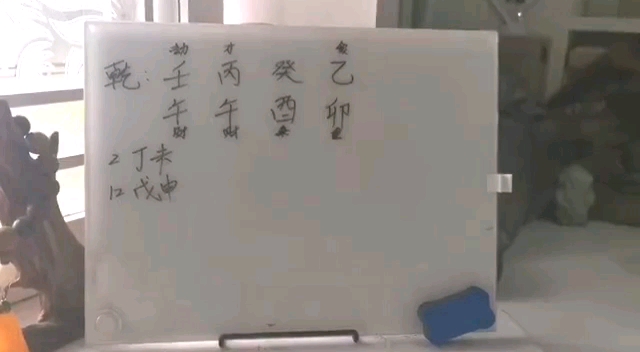 劫 才 食
乾: 壬 丙 癸 乙
午 午 酉 卯
财 财 枭 食
2 丁未
12 戊申